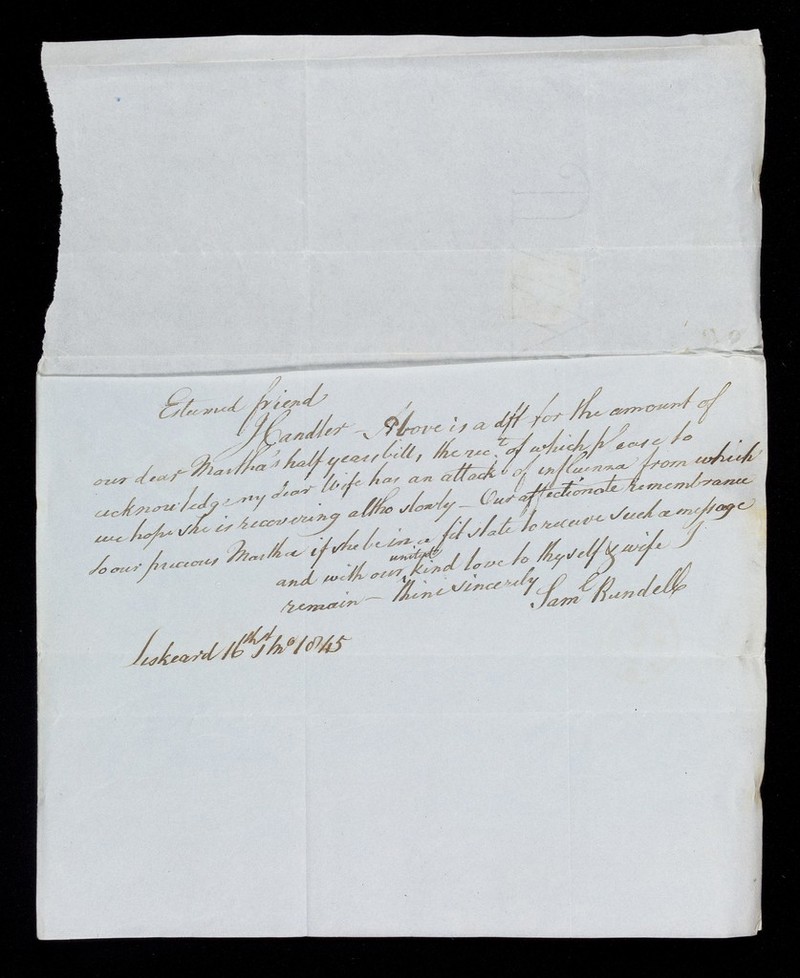 Esteemed friend
J Candler Above is a dft for the amount of
our dear Martha's half years bill, the rec.t of which please to
acknowledge my dear Wife has an attack of influenna from which
we hope she is recovering altho slowly - Our affectionate remembrance
to our precious Martha if she be in a fit state to receive such a message
and with our united kind love to thyself & wife I
remain - thine sincerely
Saml Rundell
Liskeard 16th 1mo 1845